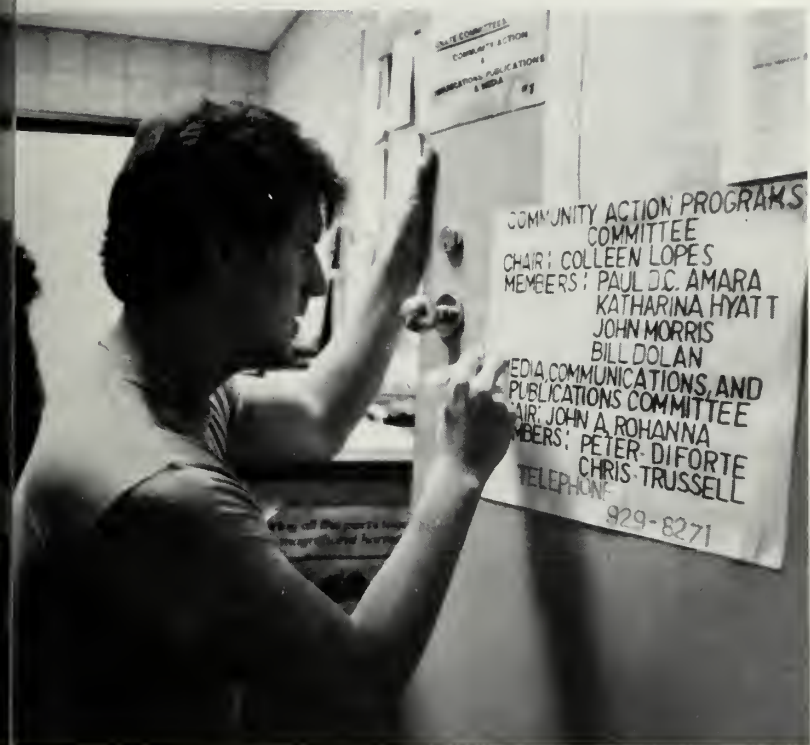 COMMITTEES
COMMUNITY ACTION
&
PUBLICATIONS
& MEDIA #1
COMMUNITY ACTION PROGRAMS
COMMITTEE
CHAIR: COLLEEN LOPES
MEMBERS: PAUL D.C. AMARA
KATHARINA HYATT
JOHN MORRIS
BILL DOLAN
EDIA, COMMUNICATIONS, AND
PUBLICATIONS COMMITTEE
AIR: JOHN A. ROHANNA
MBERS: PETER DIFORTE
CHRIS TRUSSELL
TELEPHONE
929-8271
all the parts